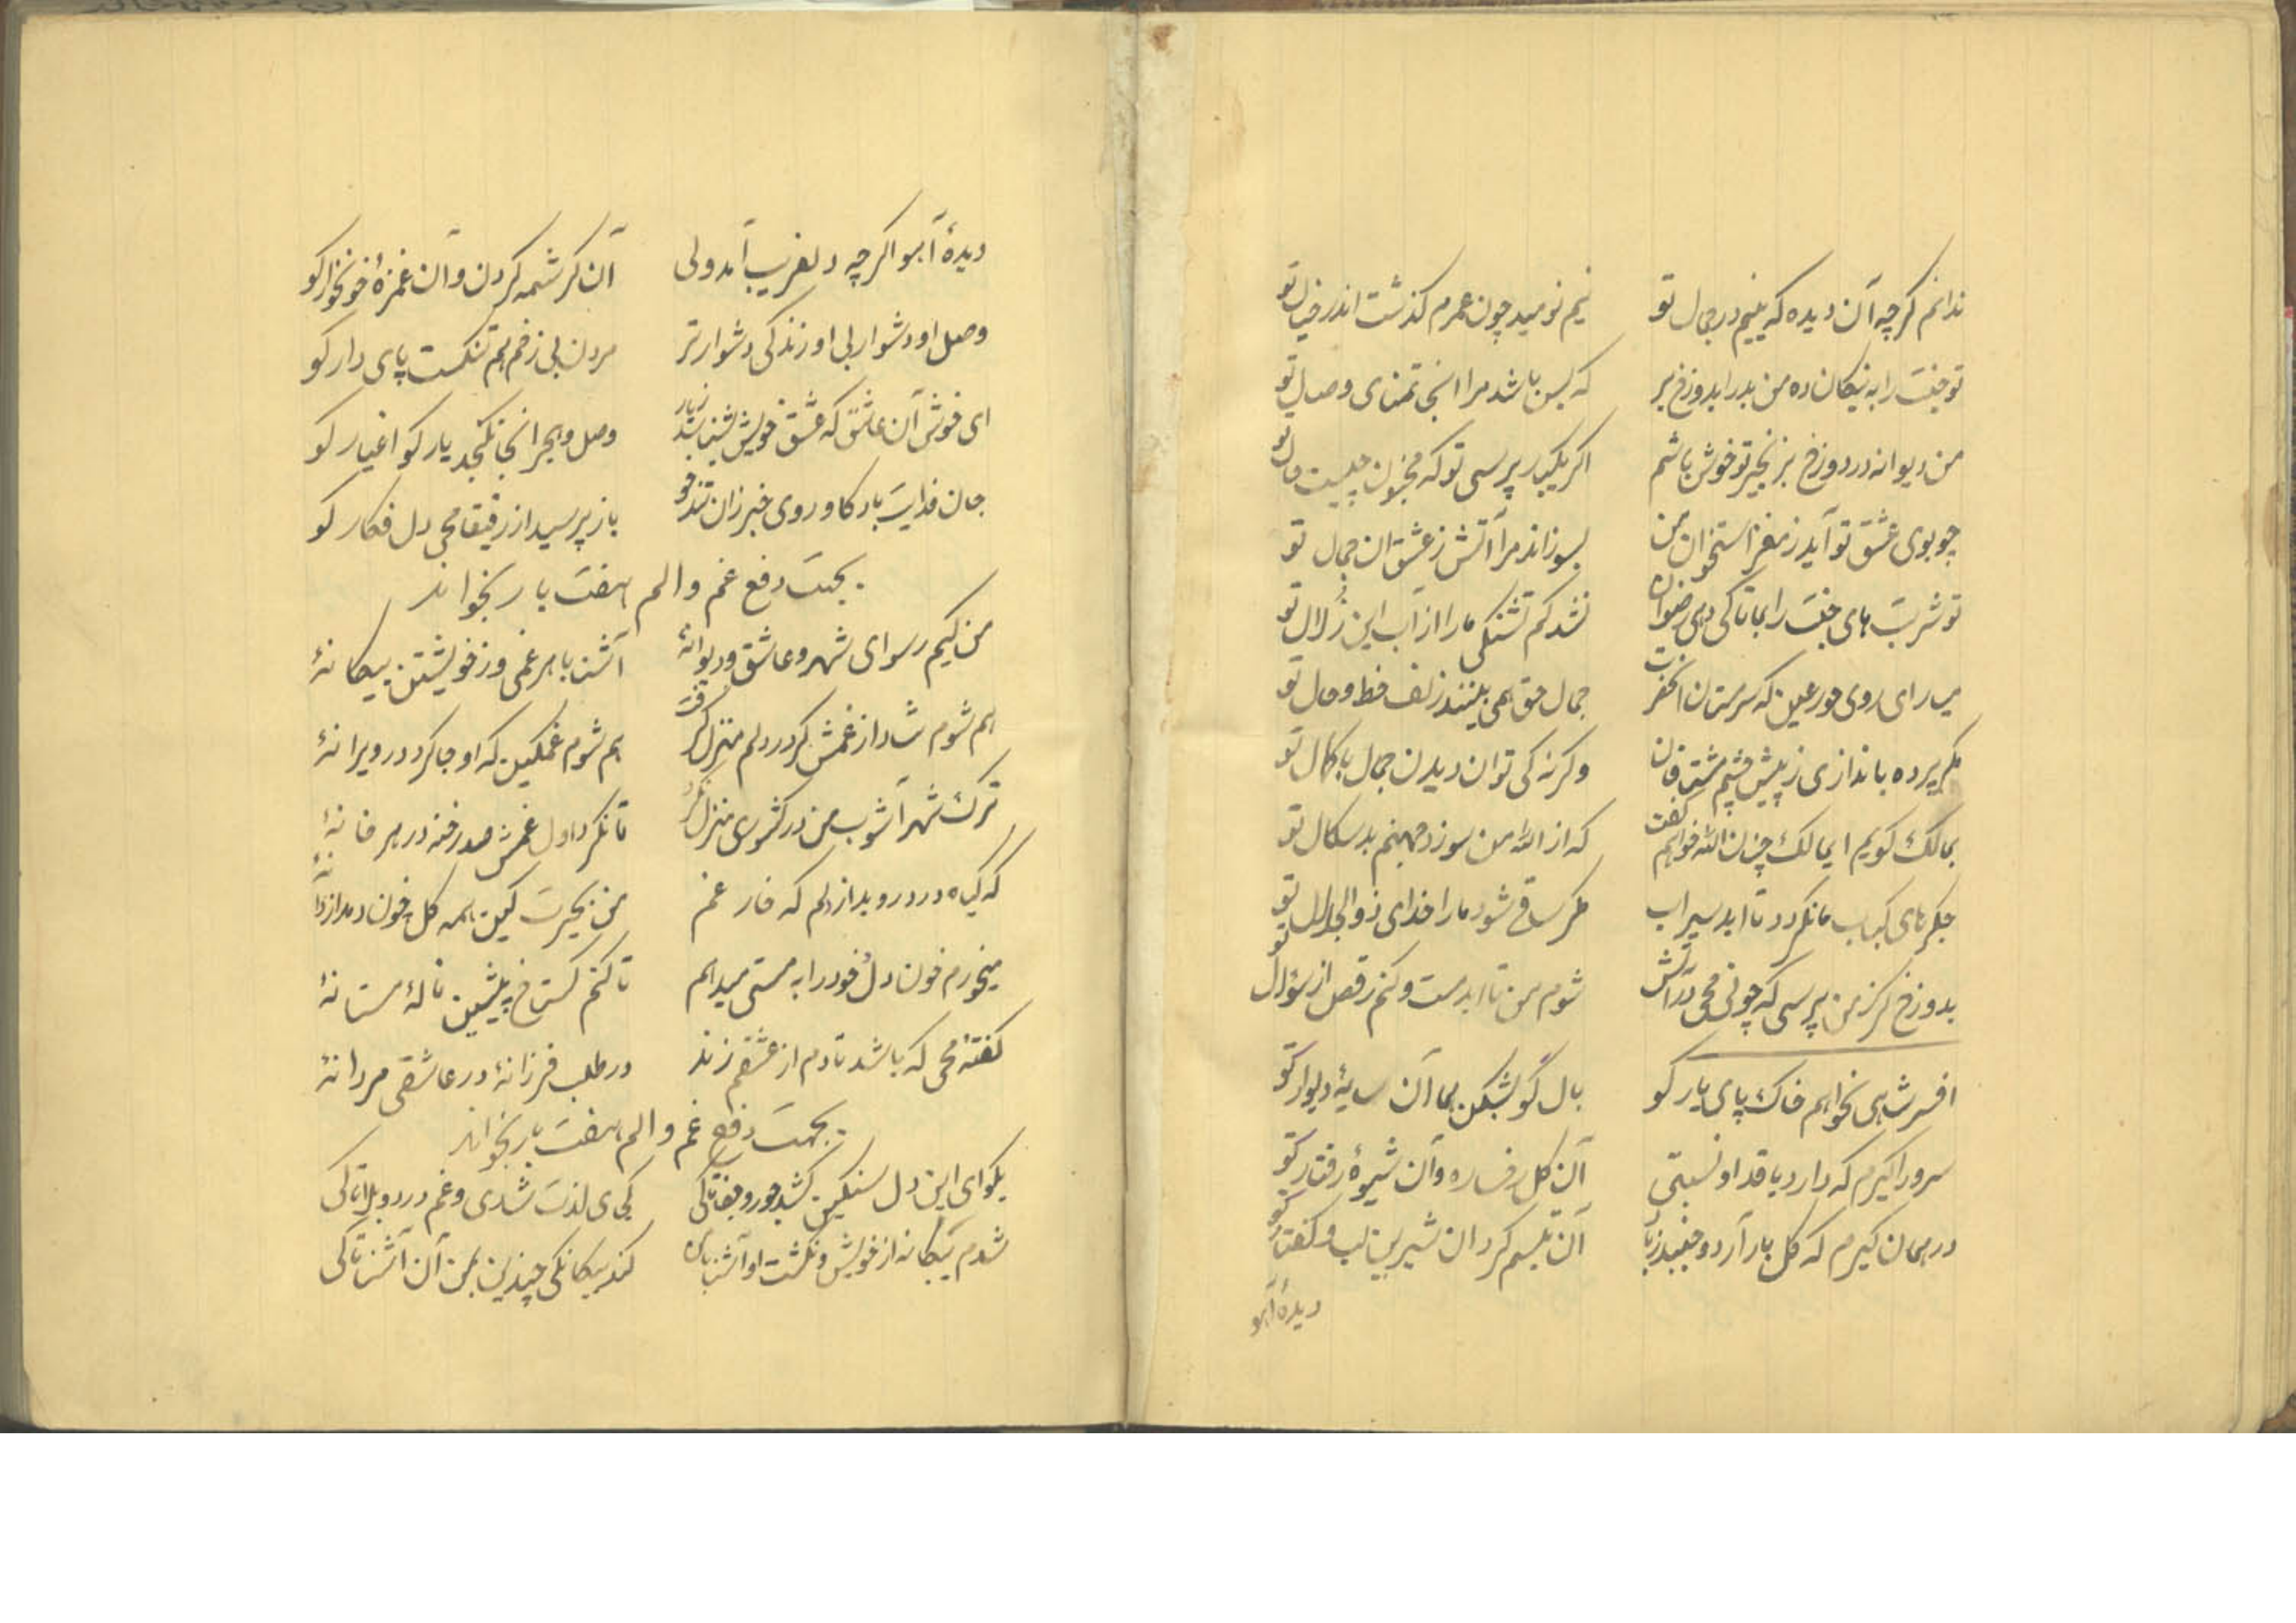 ندانم گرچه آن دیده که بینم در جمال تو نیم نومید چون عمرم گذشت اندر خیال تو
تو جنت را به نیکان ده من بد را بدوزخ بر که بس باشد مرا آنجا تمنای وصال تو
من دیوانه در دوزخ بزنجیر تو خوش باشم اگر یکبار پرسی تو که مجنون چیست حال تو
چو بوی عشق تو آید ز مغز استخوان من بسوزاند مرا آتش ز عشق آن جمال تو
تو شربت های جنت را بما تا کی دهی رضوان نشد کم تشنگی ما را از آب این زلال تو
روی حور عین که سرمستان آنحضرت جمال حق همی بینند زلف خط و خال تو
مگر پرده بیاندازی ز پیش چشم مشتاقان وگرنه کی توان دیدن جمال با کمال تو
بمالک گویم ای مالک چزن الله خواهم گفت که از الله من سوزد جهنم بد سکال تو
جگرهای کباب ما نگردد تا ابد سیراب مگر ساقی شود ما را خدای ذوالجلال تو
بدوزخ گر ز من پرسی که چونی محی در آتش شوم من تا ابد مست و کنم رقص از سؤال تو
افسر شاهی نخواهم خاک پای یار کو بال گو بشکن هما آن سایهٔ دیوار کو
سرو را گیرم که دارد با قد او نسبتی آن گل رخساره و آن شیوهٔ رفتار کو
در جهان گیرم که گل بار آرد و جنبد ز باد آن تبسم کردن شیرین لب و گفتار کو
دیدهٔ آهو
دیدهٔ آهو اگرچه دلفریب آمد ولی آن کرشمه کردن و آن غمزهٔ خونخوار کو
وصل او دشوار بی او زندگی دشوارتر مردن بی زخم هم ننگست پای دار کو
ای خوش آن عاشق که عشق خویش نشناسد ز یار وصل و هجر آنجا نگنجد یار کو اغیار کو
جان فدایت باد کاوردی خبر زان تندخو باز پرسید از رفیقا محی دل فکار کو
بجهت دفع غم و الم هفت بار بخواند
من کیم رسوای شهر و عاشق و دیوانهٔ آشنا با هر غمی وز خویشتن بیگانهٔ
هم شوم شاد از غمش کو در دلم منزل گرفت هم شوم غمگین که او جا کرد در ویرانهٔ
ترک شهرآشوب من در کشوری منزل نکرد تا نکرد اول غمش صد رخنه در هر خانهٔ
که گیاه درد روید از دلم که خار غم من بحیرت کین همه گل چون دمد از دانهٔ
میخورم خون دل خود را به مستی میدهم تا کنم گستاخ پیشین نالهٔ مستانهٔ
گفتهٔ محی که باشد تا دم از عشقم زند در طلب فرزانهٔ در عاشقی مردانهٔ
بجهت دفع غم و الم هفت بار بخواند
بگو ای این دل سنگین کشد جور و جفا تا کی کجی ی لذت شادی و غم درد و بلا تا کی
شدم بیگانه از خویش و نگشت او آشنا با من کند بیگانگی چندین بمن آن آشنا تا کی